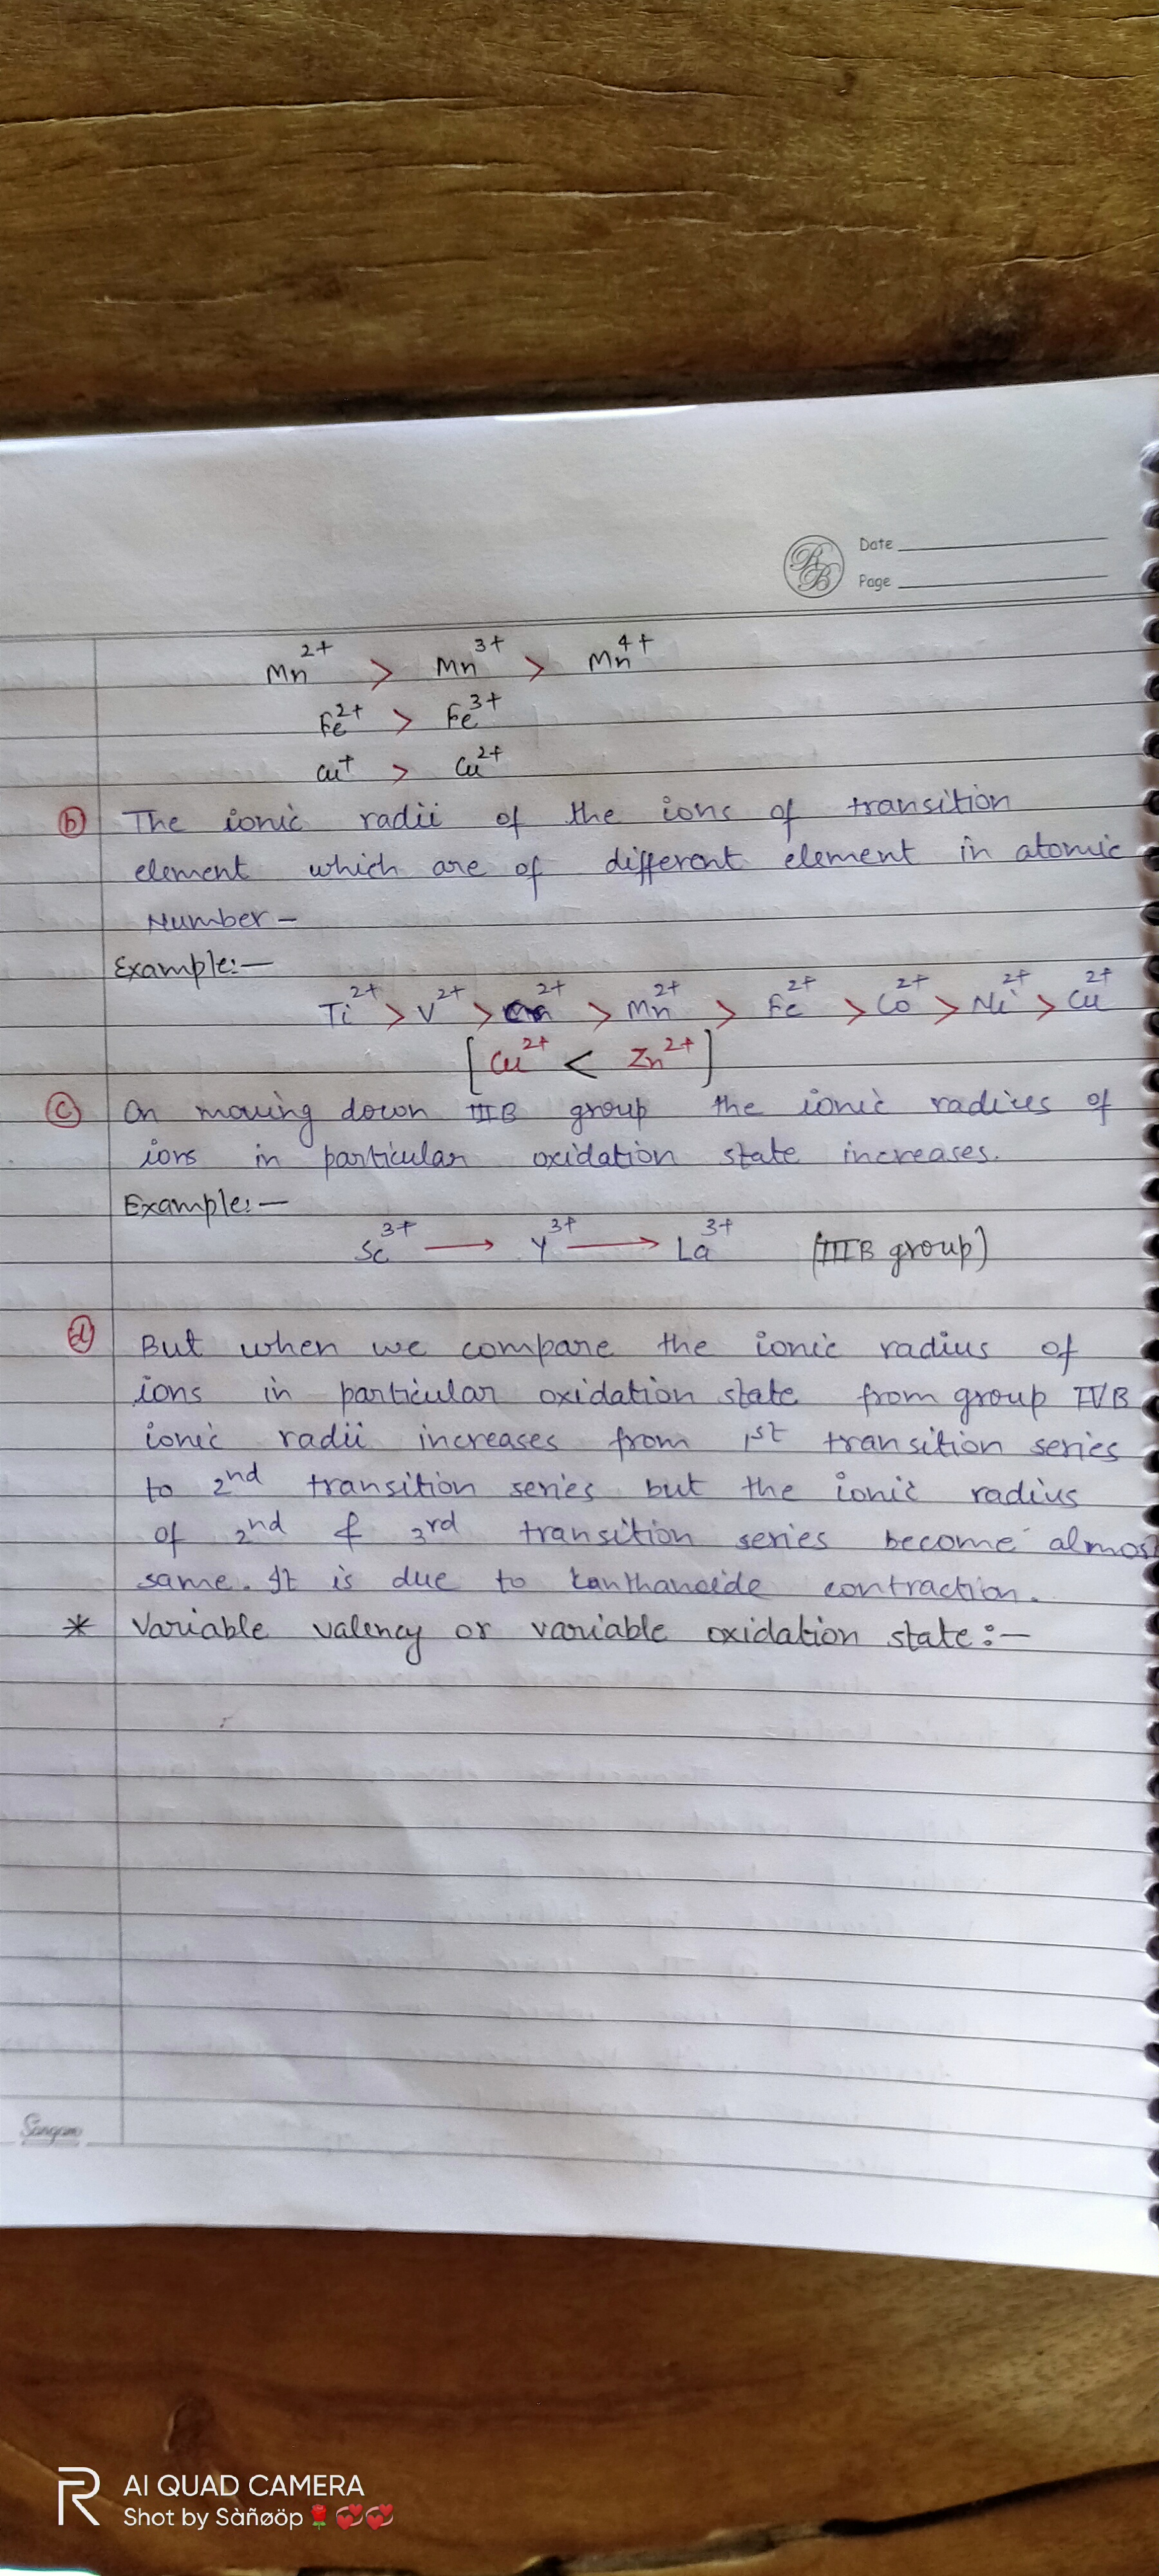 Date
Page
Mn²⁺ > Mn³⁺ > Mn⁴⁺
Fe²⁺ > Fe³⁺
Cu⁺ > Cu²⁺
(b) The ionic radii of the ions of transition
element which are of different element in atomic
Number -
Example:-
Ti²⁺ > V²⁺ > ²⁺ > Mn²⁺ > Fe²⁺ > Co²⁺ > Ni²⁺ > Cu²⁺
[Cu²⁺ < Zn²⁺]
(c) On moving down IIIB group the ionic radius of
ions in particular oxidation state increases.
Example:-
Sc³⁺ → Y³⁺ → La³⁺ (IIIB group)
(d) But when we compare the ionic radius of
ions in particular oxidation state from group IVB
ionic radii increases from 1st transition series
to 2nd transition series but the ionic radius
of 2nd & 3rd transition series become almos
same. It is due to contraction.
* Variable valency or variable oxidation state:-
Sangam
AI QUAD CAMERA
Shot by Sàñøöp🌹💞💞